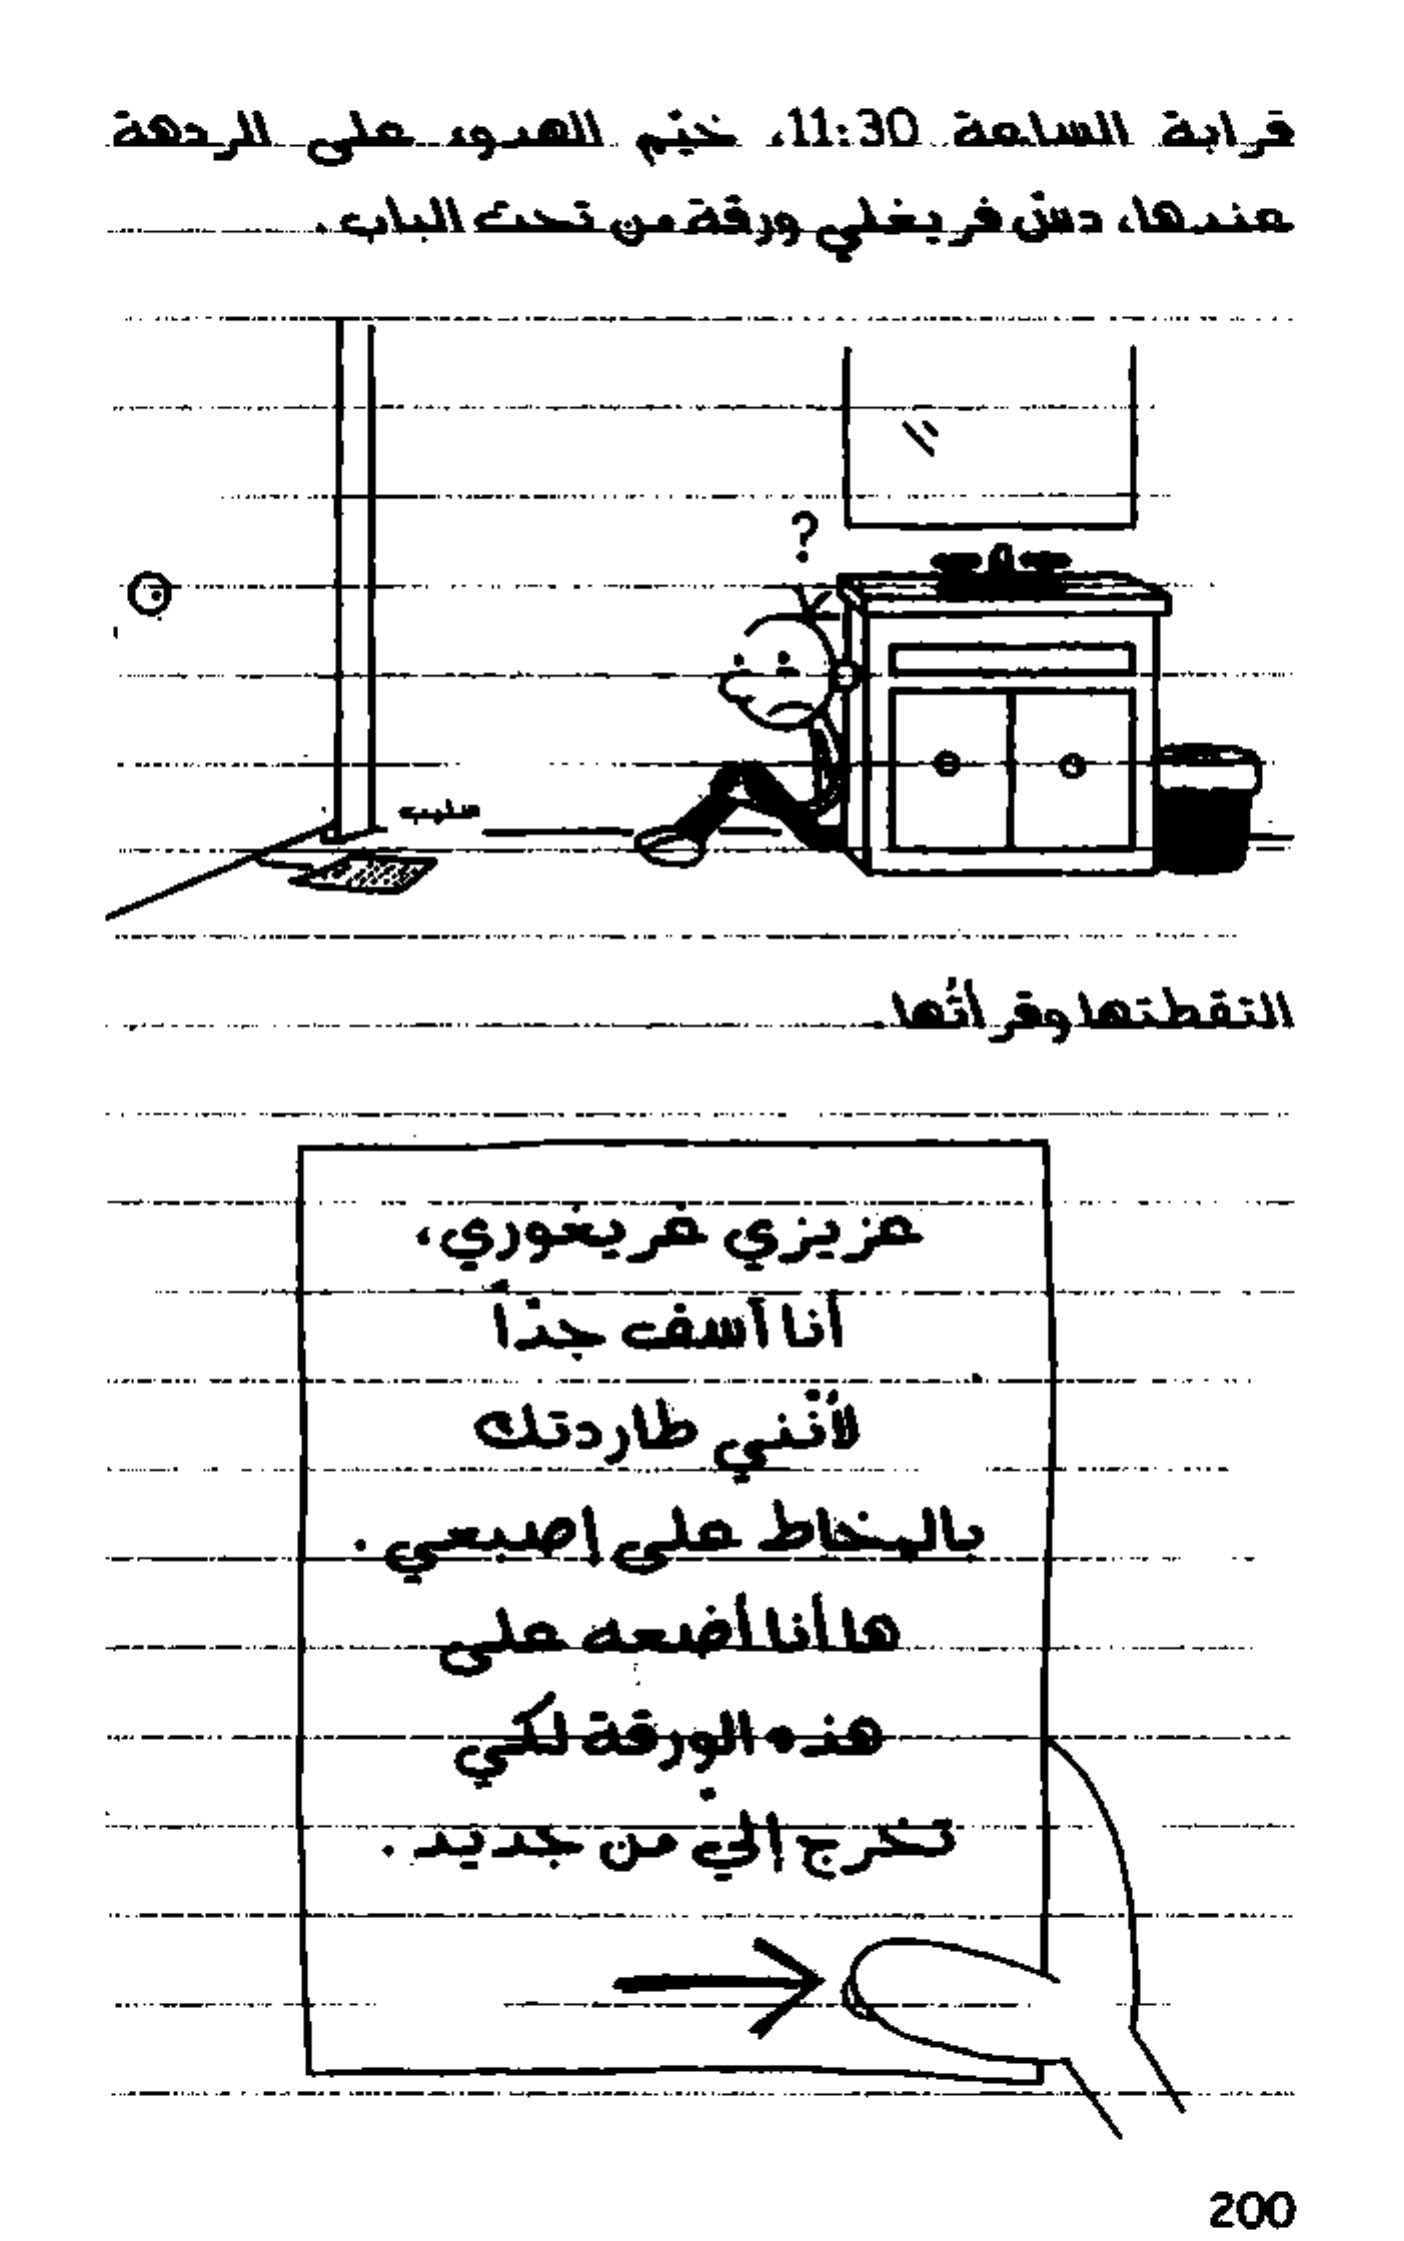 قرابة الساعة 11:30، خيّم الهدوء على الردهة
عندها، دسّ فريغلي ورقة من تحت الباب.
?
سليب
التقطتها وقرأتُها.
عزيزي غريغوري،
أنا آسف جدّاً
لأنّني طاردتك
بالمخاط على إصبعي.
ها أنا أضعه على
هذه الورقة لكي
تخرج إليّ من جديد.
200